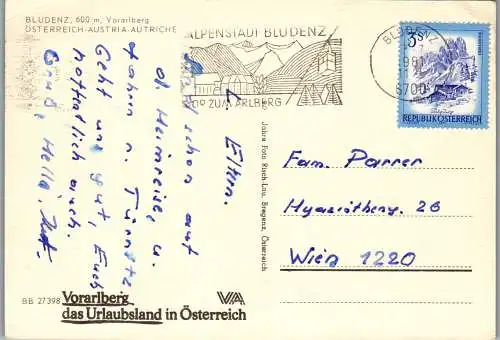 BLUDENZ, 600 m, Vorarlberg
ÖSTERREICH-AUSTRIA-AUTRICHE
ALPENSTADT BLUDENZ
ZUM ARLBERG
BLUDENZ
6700
3 S
REPUBLIK ÖSTERREICH
L. Eltern.
Sind schon auf
d. Heimreise, u.
fahren n.
Geht uns gut, Euch
hoffentlich auch.
Gruß, Hella,
Jahre Foto Risch-Lau, Bregenz, Österreich
Fam. Parrer
26
Wien 1220
BB 27398
Vorarlberg
das Urlaubsland in Österreich
VA